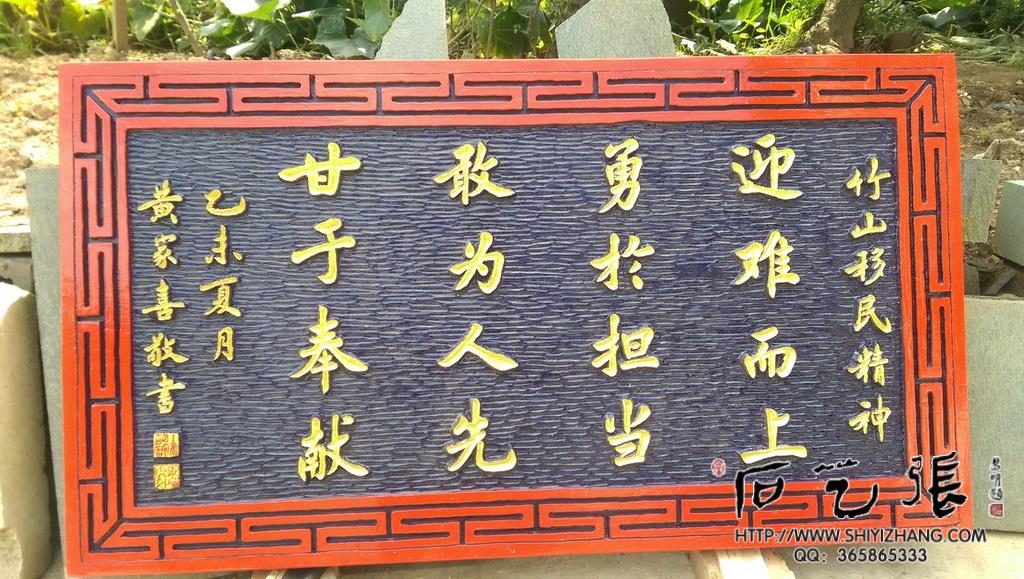 竹山移民精神
迎难而上
勇於担当
敢为人先
甘于奉献
乙未夏月
黄家喜敬书
石艺張
HTTP://WWW.SHIYIZHANG.COM
QQ: 365865333